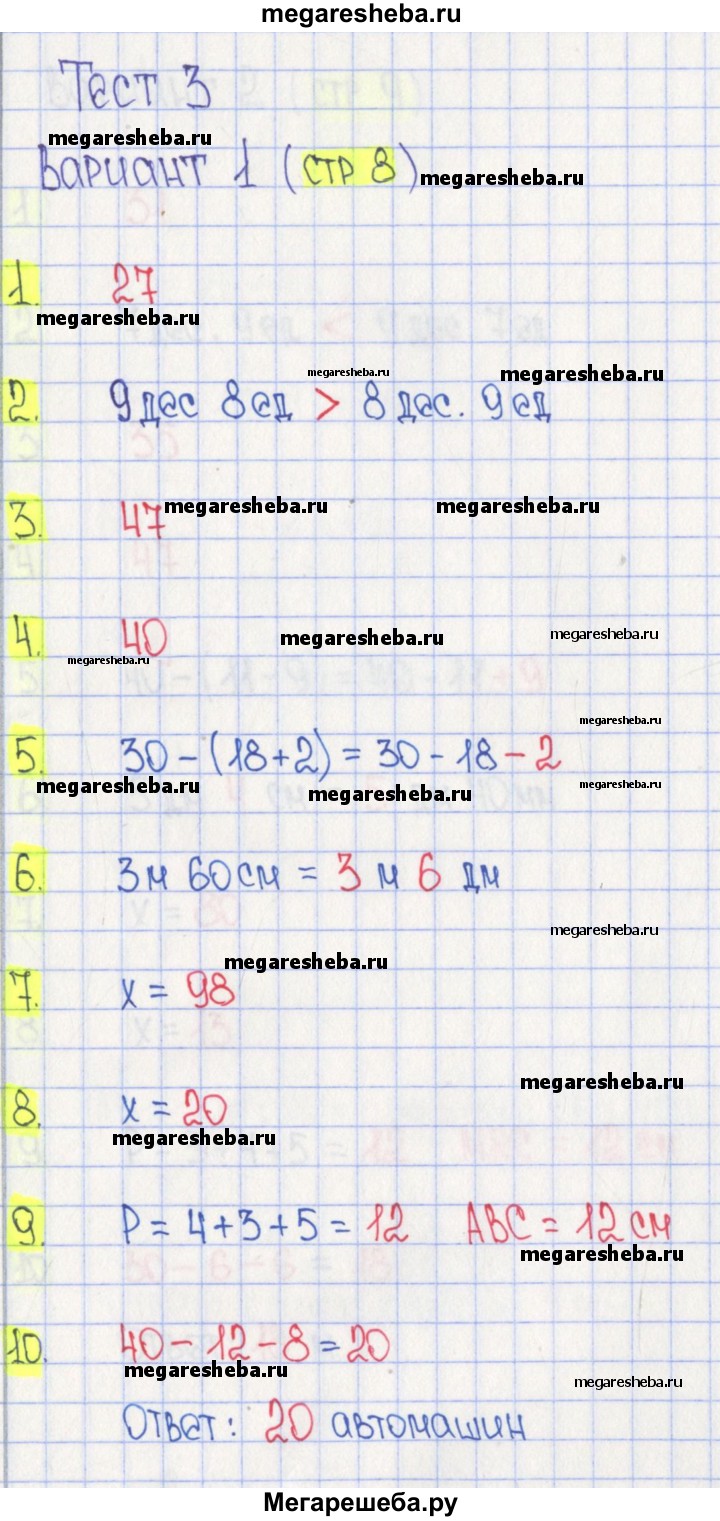 megaresheba.ru
Тест 3
megaresheba.ru
Вариант 1 (стр 8) megaresheba.ru
1. 27
megaresheba.ru
megaresheba.ru megaresheba.ru
2. 9 дес 8 ед > 8 дес. 9 ед
3. 47 megaresheba.ru megaresheba.ru
4. 40 megaresheba.ru megaresheba.ru
megaresheba.ru
megaresheba.ru
5. 30 - (18 + 2) = 30 - 18 - 2
megaresheba.ru megaresheba.ru megaresheba.ru
6. 3 м 60 см = 3 м 6 дм
megaresheba.ru
megaresheba.ru
7. х = 98
megaresheba.ru
8. х = 20
megaresheba.ru
9. Р = 4 + 3 + 5 = 12 АВС = 12 см
megaresheba.ru
10. 40 - 12 - 8 = 20
megaresheba.ru megaresheba.ru
Ответ: 20 автомашин
Мегарешеба.ру